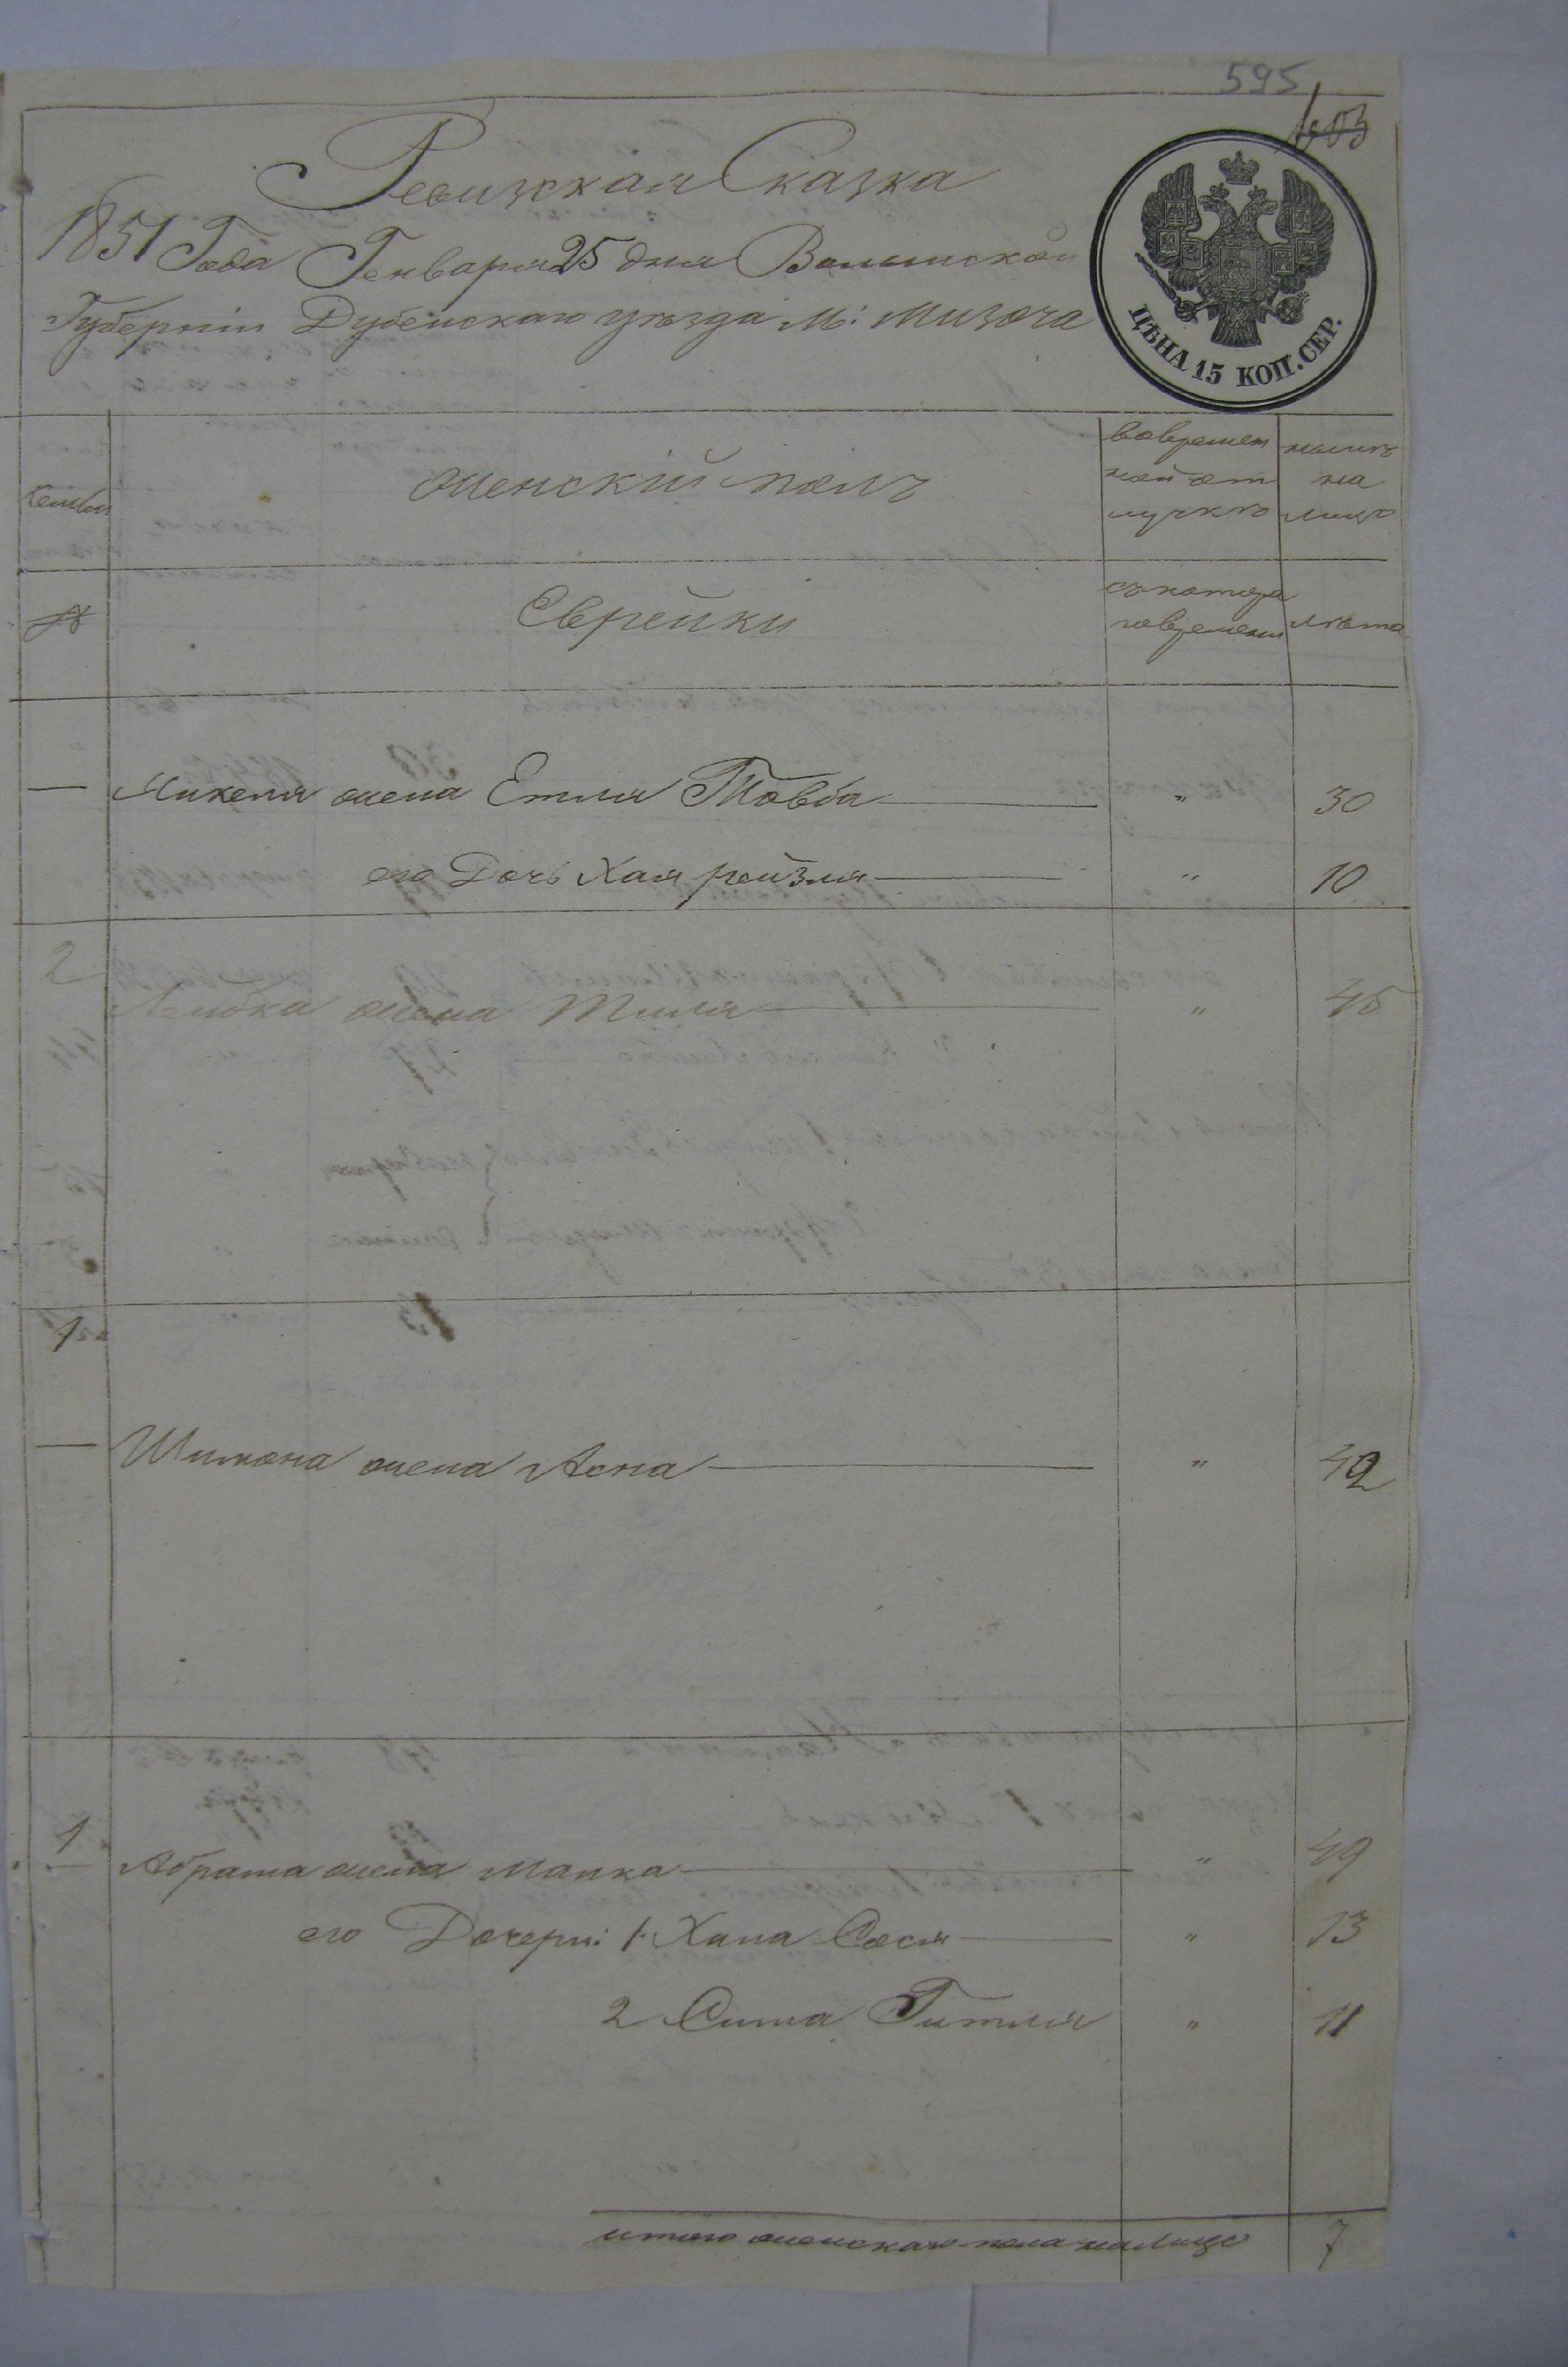 595
603
Ревизская Сказка
1851 Года Генваря 25 дня Волынской
Губерніи Дубенскаго уѣзда М: Мизоча
ЦѢНА 15 КОП. СЕР.
Семьи
Женский полъ
во времен
ной от
лучкѣ
нынѣ
на
лицо
№
Еврейки
съ котора
го времени
лѣта
— Янкеля жена Етля Товба — " 30
его Дочь Хая рейзля — " 10
2
Лейбка жена — " 45
1
— Шимона жена Асна — " 42
1
Абрама жена Малка — " 49
его Дочери: 1. Хана Сося — " 13
2 Сима Гитля " 11
итого женскаго пола налицо 7